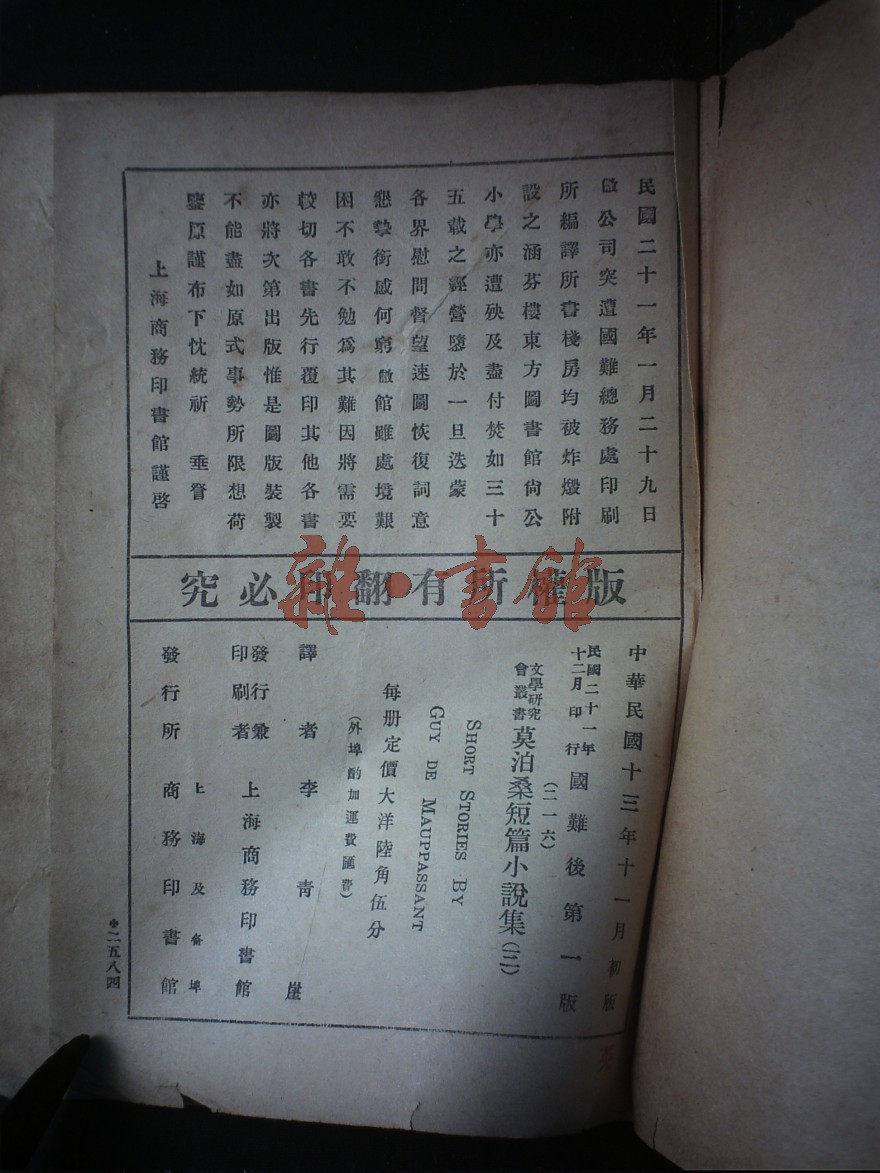 民國二十一年一月二十九日
敝公司突遭國難總務處印刷
所編譯所書棧房均被炸燬附
設之涵芬樓東方圖書館尚公
小學亦遭殃及盡付焚如三十
五載之經營隳於一旦迭蒙
各界慰問督望速圖恢復詞意
懇摯銜感何窮敝館雖處境艱
困不敢不勉爲其難因將需要
較切各書先行覆印其他各書
亦將次第出版惟是圖版裝製
不能盡如原式事勢所限想荷
鑒原謹布下忱統祈 垂詧
上海商務印書館謹啓
版權所有翻印必究
雜·書館
中華民國十三年十一月初版
民國二十一年十二月印行 國難後第一版
(二一六)
文學研究會叢書 莫泊桑短篇小說集(三)
SHORT STORIES BY
GUY DE MAUPPASSANT
每册定價大洋陸角伍分
(外埠酌加運費匯費)
譯者 李青崖
發行兼印刷者 上海商務印書館
發行所 上海及各埠 商務印書館
二五八四